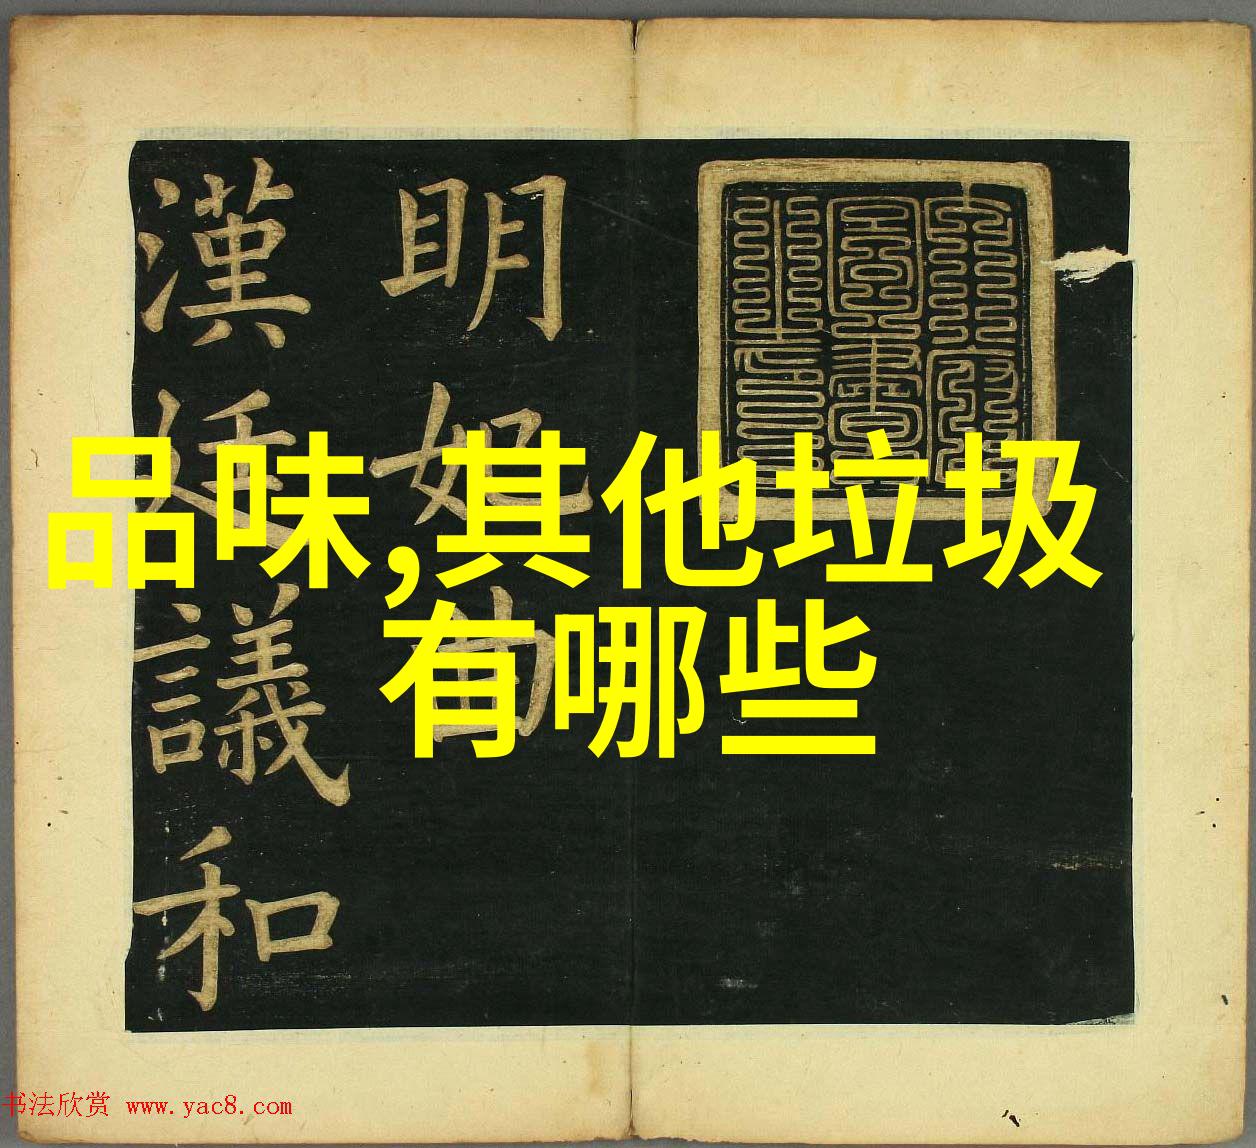 品味,其他垃圾
有哪些
明妃曲
漢廷議和
书法欣赏 www.yac8.com